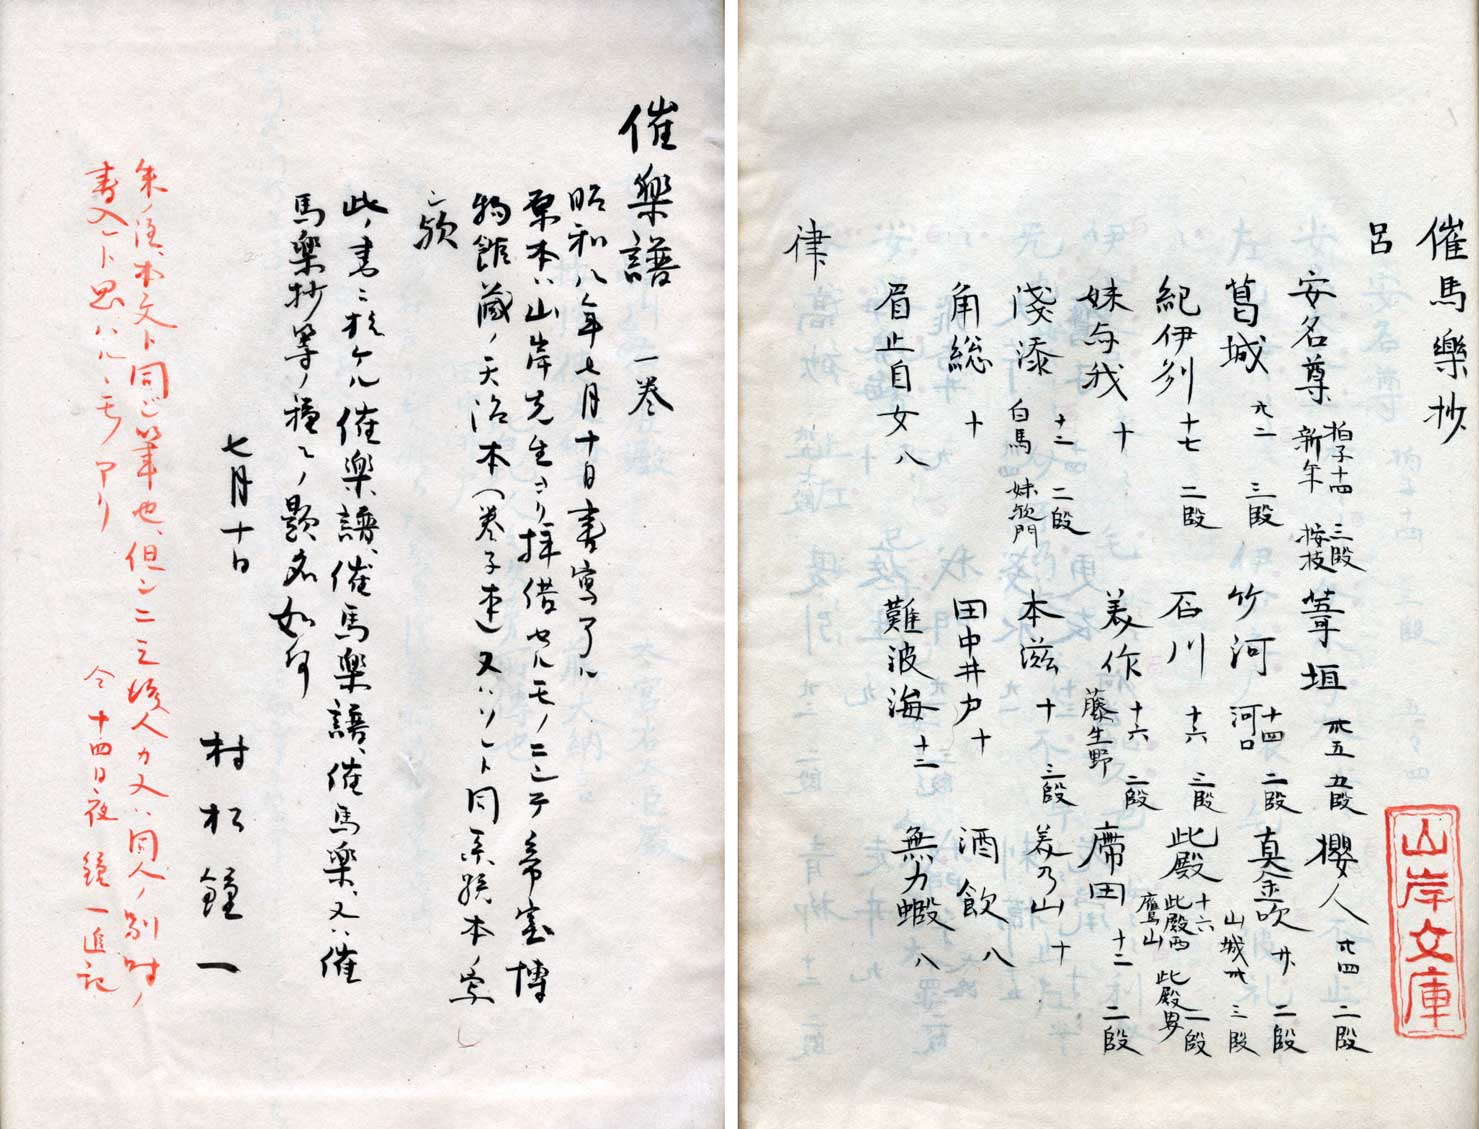 催馬樂抄
呂
安名尊 拍子十四 三段 新年 按枝 葦垣 卅五 五段 櫻人 廿四 二段
葛城 廿二 三段 竹河 十四 二段 河口 真金吹 廿 二段
紀伊州 十七 二段 石川 十六 三段 此殿 十六 山城 卅 三段 此殿西 此殿奧 二段 鷹山
妹与我 十 美作 十六 二段 藤生野 席田 十二 二段
淺漆 十二 二段 白馬 妹欤門 本滋 十 三段 美乃山 十
角総 十 田中井戸 十 酒飲 八
眉止自女 八 難波海 十二 無力蝦 八
律
山岸文庫
催樂譜 一卷
昭和八年七月十日書寫了ル
原本ハ山岸先生ヨリ拝借セルモノニシテ帝室博
物館藏ノ天治本(卷子本)又ハソレト同系統本ノ寫
シ欤
此ノ書ニ於ケル催樂譜、催馬樂譜、催馬樂、又ハ催
馬樂抄等ノ種々ノ題名如何
七月十日
村松鐘一
朱ノ注、本文ト同じ筆也、但シ二三後人カ又ハ同人ノ別時ノ
書入レト思ハルヽモノアリ
今十四日夜 鐘一追記